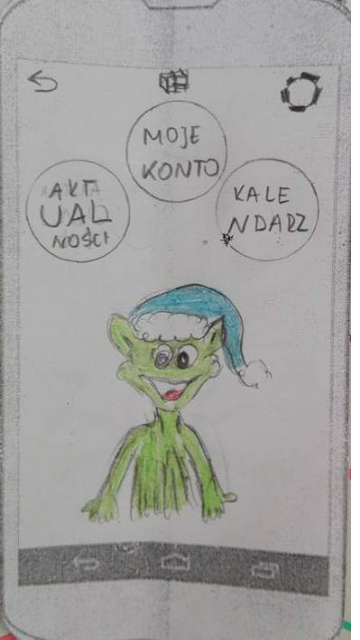 MOJE
KONTO
AKT
UAL
NOŚCI
KALE
NDARZ